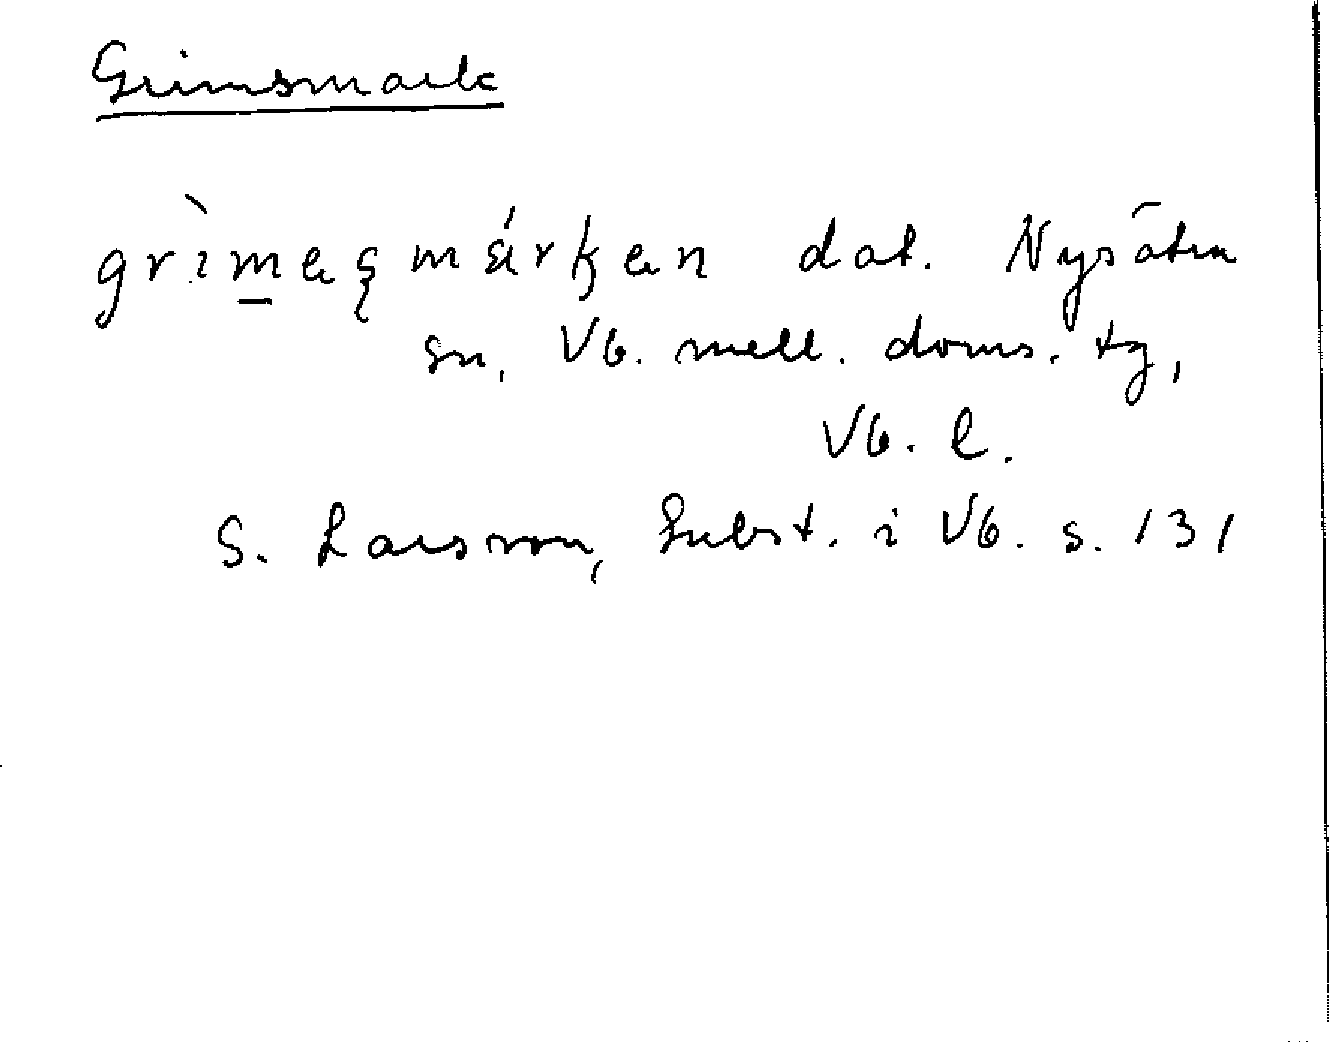 Grimsmark
grìmesmárken dat. Nysätra
sn, Vb. mell. doms. tg,
Vb. l.
S. Larsson, Subst. i Vb. s. 131